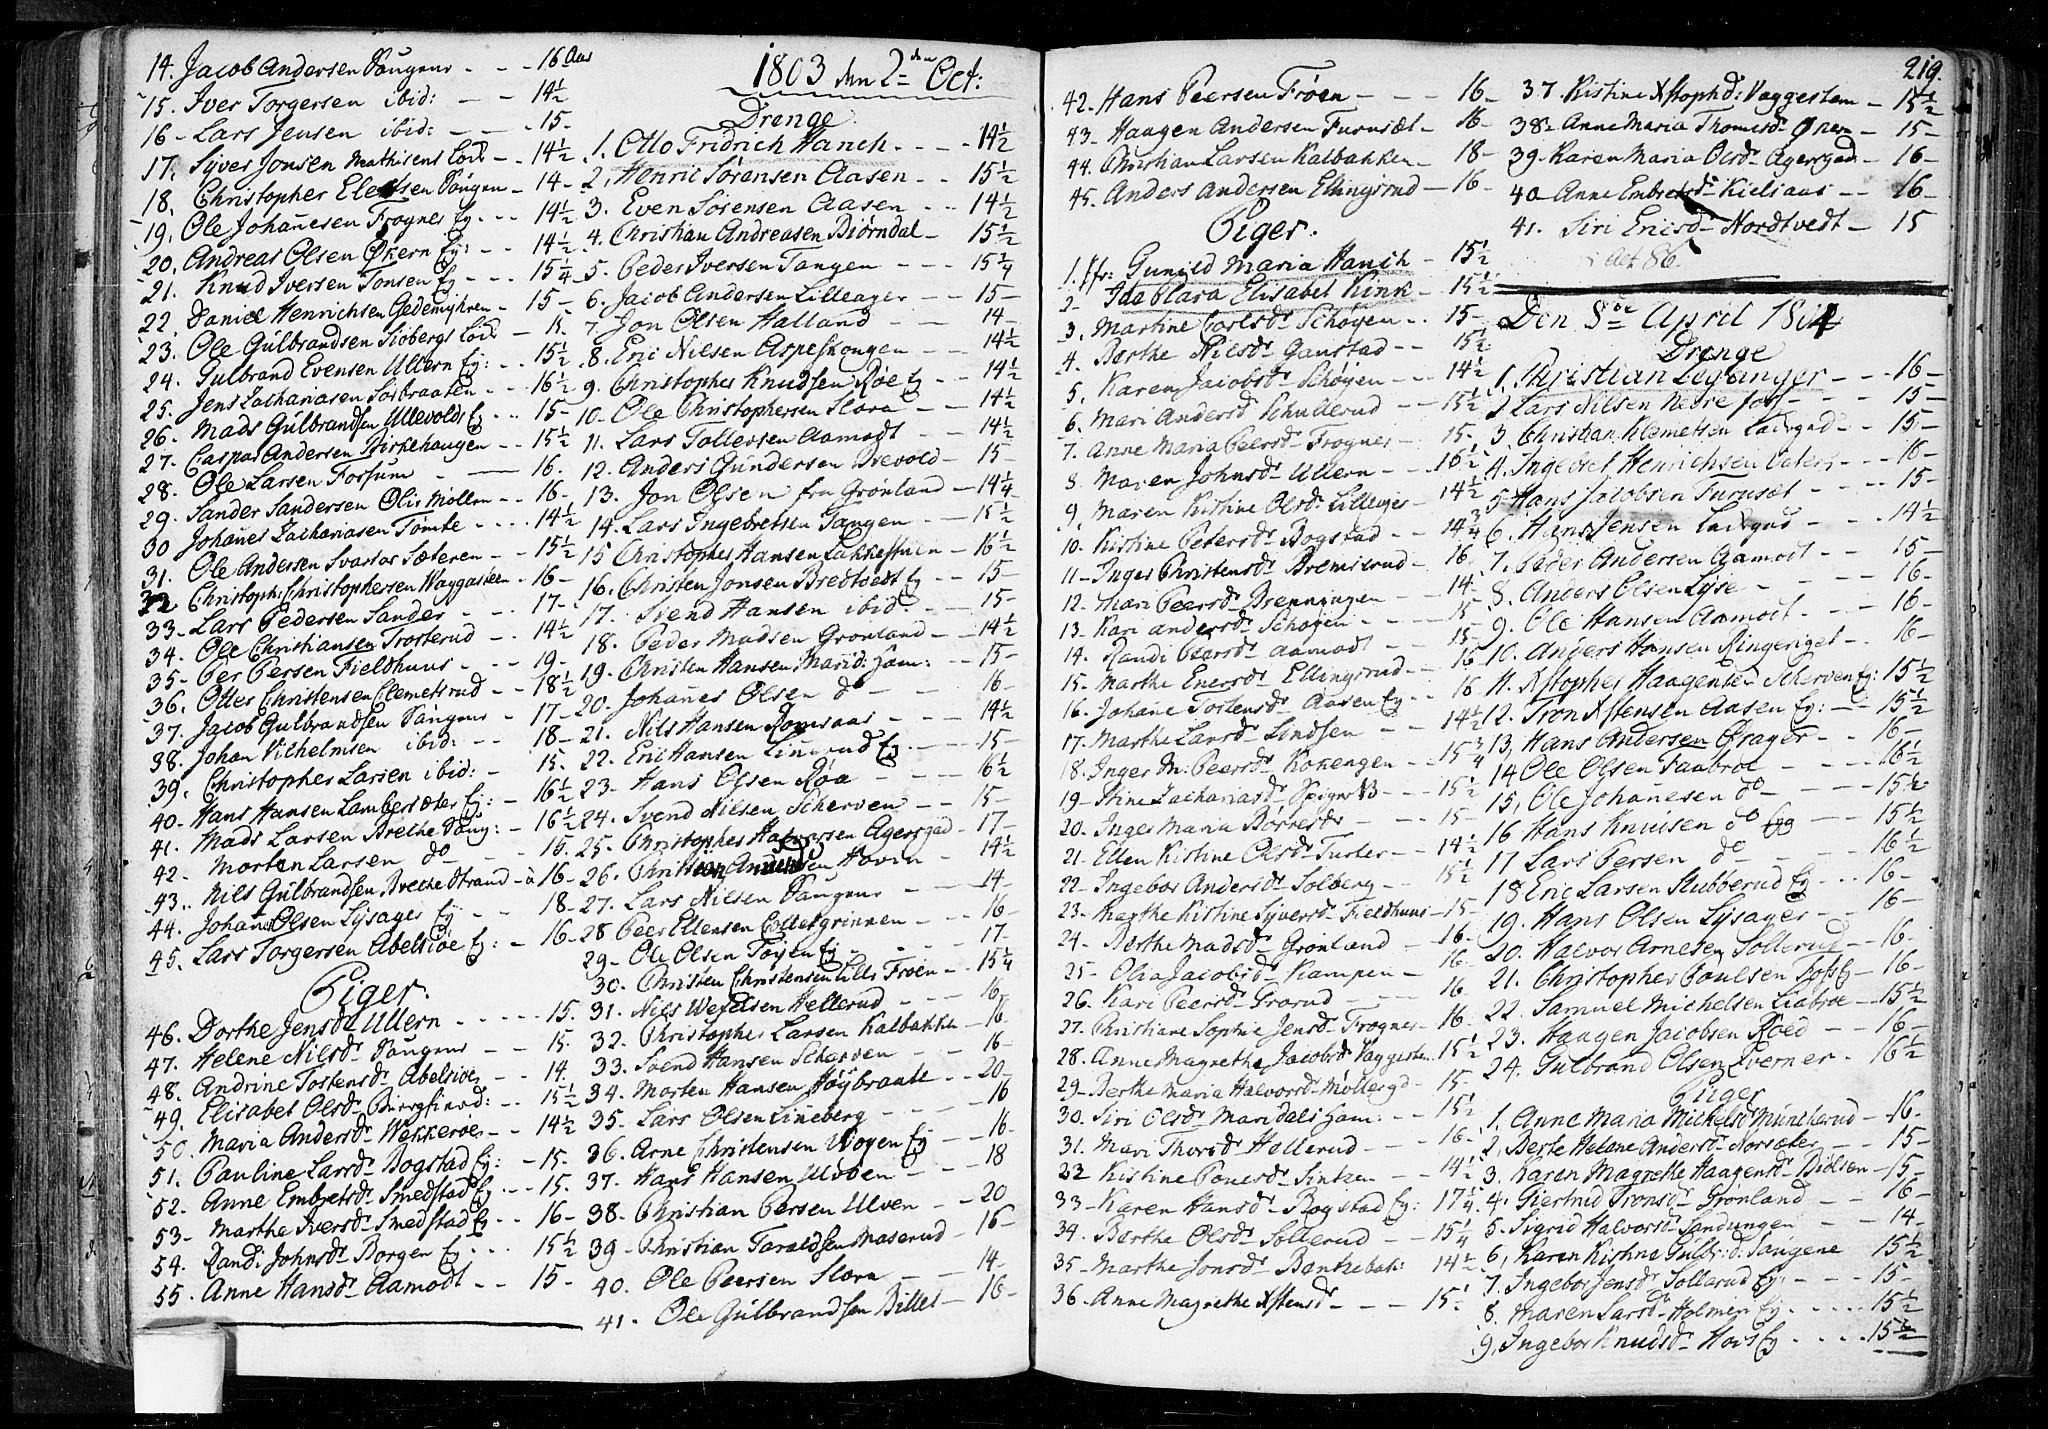 14. Jacob Andersen Sougens - - - 16 Aar
15. Iver Torgersen ibid: - - 14 1/2
16 - Lars Jensen ibid: - - - 15 -
17. Syver Jonsen Mathisens Lod: - - 14 1/2
18. Christopher Elefsen Sougen - 14 -
19. Ole Johañesen Frogner Eg. - - - 14 1/2
20. Andreas Olsen Økern Eg: - - 14 1/2
21. Knud Iversen Tonsen Eg - - - 15 1/4
22. Daniel Henrichsen Gedemyhren - 15 -
23. Ole Gulbrandsen Siobergs Lod: - 15.
24. Gulbrand Evensen Ullern Eg: - - 15 1/2
25. Jens Zachariasen Sorbraaten - - - 16 1/2
26. Mads Gulbrandsen Ullevolds Eg - - - 15 -
27. Caspar Andersen Kirkehaugen - - 15 1/2
28. Ole Larsen Fossum - 16.
29. Sander Sandersen Olis Mollen - - 16 -
30 Johañes Zachariasen Tomte - - - - 14 1/2
31. Ole Andersen Svartor Sæteren - - 15 1/2
32 Christoph: Christophersen Vaggesteen - 16 -
33 - Lars Pedersen Sander - - - 17 -
34. Ole Christiansen Trosterud - - 14 1/2
35 - Per Persen Fieldhuus - - - 19 -
36. Otter Christensen Clemetsrud - - 18 1/2
37. Jacob Gulbrandsen Sougens - 17 -
38. Johan Vilhelmsen ibid: - - 18 -
39. Christopher Larsen ibid: - 15.
40 - Hans Hansen Lambersæter Eg: - 16 1/2
41. Mads Larsen Brekke Soug: - 16 1/2
42 - Morten Larsen do - - - 16.
43. Nils Gulbrandsen Brekke Strand - a 16 -
44. Johan Olsen Lysager Eg - - 18.
45. Lars Torgersen Abelsiöe Eg: - 16 -
Piger.
46. Dorthe Jensd Ullern - - - - - 15.
47. Helene Nilsd Sougens - - 15.
48. Andrine Tostensd Abelsioe - - 14
49. Elisabet Olsd - - 15 1/2
50. Maria Andersd Vækkeroe - - 14 1/2
51. Pauline Larsd Bogstad Eg: - 15 -
52. Anne Embretsd Smedstad Eg - - - 15.
53 - Marthe Iversd Smedstad Eg - - 16 -
54. Randi Johnsd Borgen Eg - - - 15 1/2
55. Anne Hansd Aamodt - - 15 -
1803 den 2den Oct:
Drenge
1. Otto Fridrich Hanch - - - - 14 1/2
2, Henric Sørensen Aasen - - 15 1/2
3. Even Sørensen Aasen - - 14 1/2
4. Christian Andreasen Biørndal - 15 1/2
5. Peder Iversen Tangen - - - 15 3/4
6. Jacob Andersen Lilleager - - 15 -
7. Jon Olsen Halland - - 14 -
8. Eric Nilsen Aspeskougen - - 14 1/2
9. Christopher Knudsen Røe Eg - - 14 1/2
10 - Ole Christophersen Slora - - 14 1/2
11. Lars Tollersen Aamodt - - 14 1/2
12. Anders Gundersen Brevold - 15 -
13. Jon Olsen fra Grønland - 14 1/4
14. Lars Ingebretsen Tangen - - 15 1/2
15 Christopher Hansen Lakkestuen - 16 1/2
16. Christen Jonsen Bredtvedt Eg - - 15 -
17. Svend Hansen ibid - - 15 -
18. Peder Madsen Grønland - - 14 1/2
19. Christen Hansen Marid: Ham: - - 15 -
20. Johañes Olsen do - - - 16 -
21. Nils Hansen Romsaas - - - 14 1/2
22. Eric Hansen Linerud Eg. - - - 15 -
23. Hans Olsen Røa - - - - 16 1/2
24. Svend Nilsen Scherven - - 15 -
25. Christopher Halvorsen Agersgad - 17 -
26. Christian Andersen Hovin - 14 1/2
27. Lars Nilsen Sougens - - - 14 -
28 Peer Ellensen Colletgrinnen - - - 16 -
29 - Ole Olsen Toyen Eg - - - - 17.
30. Christen Christensen Lille Frøen - - 15 1/4
31. Nils Wessen Hellerud - - - 16
32. Christopher Larsen Kalbakken - 16 -
33. Svend Hansen Scherven - - 16 -
34. Morten Hansen Höybraate - - 20 -
35. Lars Olsen Lineberg - - - - 16
36. Arne Christensen Woyen Eg - - 16 -
37. Hans Hansen Ulven - - - 18
38. Christian Persen Ulven - 20
39 - Christian Taraldsen Maserud - 16 -
40. Ole Peersen Slora - - 14 -
41. Ole Gulbrandsen Billet - 16 -
219.
42. Hans Peersen Frøen - - - 16 -
43. Haagen Andersen Furusæt - 16 -
44. Christian Larsen Kalbakken - 18 -
45. Anders Andersen Ellingsrud - 16 -
Piger.
1. Jfr: Gunild Maria Hanch - 15 1/2
2 - Ida Clara Elisabet Kink - 15 1/2
3. Martine Carlsd Schøyen - . 15 -
4. Berthe Nilsd Gaustad - - 15 1/2
5. Karen Jacobsd Schøyen - - 14 1/2
6. Mari Andersd Schullerud - - 15 1/2
7. Anne Maria Peersd Frogner - 15.
8. Maren Johnsd Ullern - - - 16 1/2
9. Maren Kistine Olsd Lilleager - 14 1/2
10. Kistine Petersd Bogstad - - 14 3/4
11 - Inger Christensd Bremserud - 16.
12. Mari Peersd Brenningen - - - 14 -
13 - Kari Andersd Schøyen - - - - 15
14. Randi Peersd Aamodt - - - 15 -
15 - Marthe Enersd Ellingsrud - - 16
16. Johane Tostensd Aasen Eg - - 16
17. Marthe Larsd Lindsen - - 14 1/2
18. Inger M: Peersd Kokengen - - 15 3/4
19 - Stine Zachariasd Spigerv B - - - 15 1/2
20. Inger Maria Borresd - - - 15 -
21. Ellen Kistine Olsd Turter - - - 14 1/2
22 - Ingebor Andersd Solberg - - 15 1/2
23 - Marthe Kistine Syversd Fieldhuus - 15 -
24 - Berthe Madsd Grønland - 16 -
25 - Olia Jacobsd Kampen - 16.
26. Kari Peersd Grorud - - - 16
27. Christiane Sophie Jensd Frogner - 16
28. Anne Magrethe Jacobsd Vaggesten - 15 1/2
29 - Berthe Maria Halvorsd Møllergd - 15 -
30. Siri Olsd Maridals Ham: - - 15 1/2
31. Mari Thorsd Hellerud - - - 16 -
32 Kistine Povelsd Sinken - - - 14 1/2
33 - Karen Hansd Bogstad Eg: 17 1/4
34. Berthe Olsd Sollerud - - 15 1/4
35 - Marthe Jonsd Benkebak: 14 1/2
36. Anne Magrethe Xstensd - - - 15 1/2
37. Kistine Xstophd: Vaggesten - 15 1/2
38 - Anne Maria Thomesd Økern - 15 -
39. Karen Maria Olsd Agersgad - 16 -
40 - Anne Embretsd Kielsaas - - 16 -
41. Siri Ericsd Nordtvedt - 15
86.
Den 8de April 1804
Drenge
1. Christian Leganger - - - 16 -
2 Lars Nilsen Nedre foss - - - 15 -
3. Christian Klemetsen Ladegad - - 15 -
4. Ingebret Henrichsen - - - 16 -
5 Hans Jacobsen Furusæt - - - - 15 -
6. Hans Jensen Ladegad - - - 14 1/2
7. Peder Andersen Aamodt - - 15 -
8. Anders Olsen Lyse - - - - 16 -
9. Ole Hansen Aamodt - - - 16 -
10. Anders Hansen Ringeriget - - 16 -
11. Xstopher Haagensen Scherven Eg: 15 1/2
12. Tron Xstensen Aasen Eg: - - 15 1/2
13, Hans Andersen Brager - - 16 -
14 Ole Olsen Faabroe - - - - 16 1/2
15, Ole Johañesen do - - - - 15 1/2
16 Hans Knudsen do Eg - - 15 1/2
17 Lars Persen do - - - 16 1/2
18 Eric Larsen Stubberud Eg - - - 16 -
19. Hans Olsen Lysager - - - 16 -
20. Halvor Arnesen Sollerud - - 16 -
21. Christopher Paulsen - 16 -
22. Samuel Michelsen Liabroe - - 15 1/2
23. Haagen Jacobsen Røed - - 16 -
24. Gulbrand Olsen Tverner - 16 1/2
Piger
1. Anne Maria Michelsd Munkerud - 16 -
2, Berte Helene Andersd Norsæter - - 15 -
3. Karen Magrethe Haagensd Biölsen - 15 -
4. Giertrud Tronsd Grønland - - 16 -
5. Sigrid Halvorsd Sandungen - - 14 -
6, Karen Kistine Gulbr:d: Saugene 15 1/2
7. Ingebor Jensd Sollerud Eg: - - - 15 -
8. Maren Larsd Holmen Eg - - - - 15 1/2
9, Ingebor Knudsd Hovs Eg - - - - 15 1/2